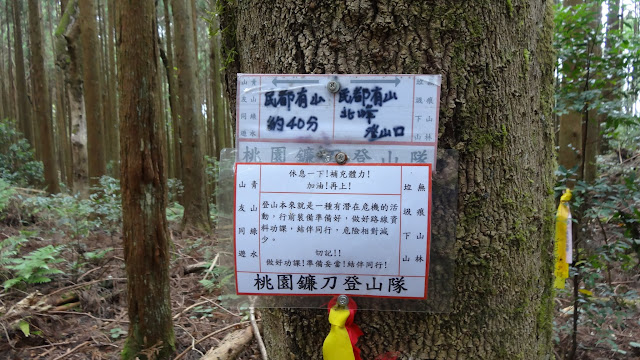 民都有山
約40分
民都有山
北峰
登山口
青山綠水
山友同遊
無痕山林
垃圾下山
桃園鐮刀登山隊
休息一下!補充體力!
加油!再上!
青山綠水
山友同遊
登山本來就是一種有潛在危機的活
動,行前裝備準備好,做好路線資
料功課,結伴同行,危險相對減
少。
切記!!
做好功課!準備妥當!結伴同行!
無痕山林
垃圾下山
桃園鐮刀登山隊